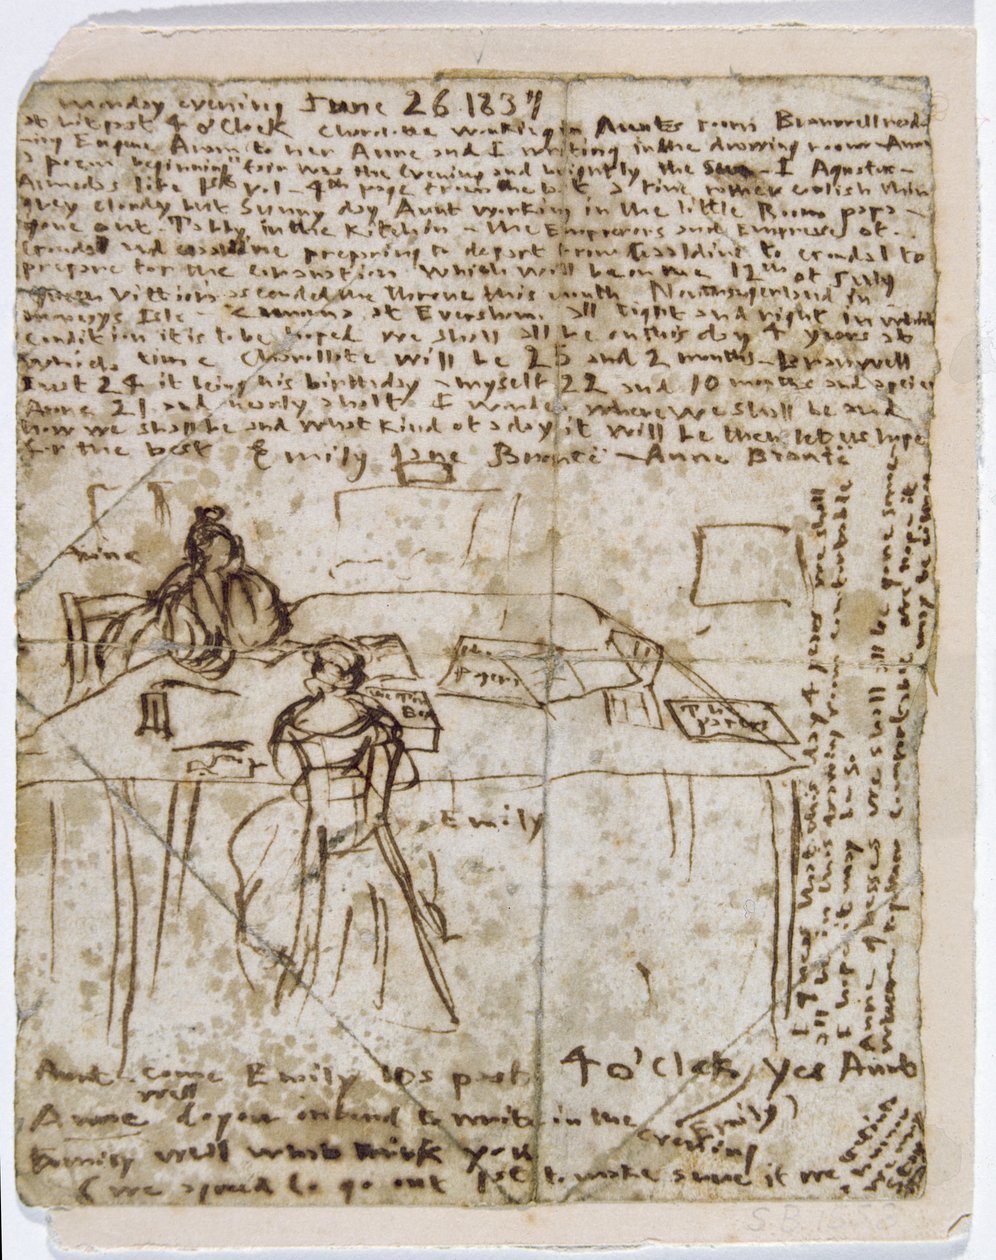 Monday evening June 26 1837
at hitpast 4 o'Clock Charolotte working in Aunts room Branwell read-
ing Eugne Aram to her Anne and I writing in the drawing room - Anne
a poem beginning "fair was the evening and brightly the Sun - I Agustus -
Almedas life 1st vol - 4th page from the last a fine rather coolish thin
grey cloudy but Sunny day Aunt working in the little Room papa -
gone out. Tabby in the Kitchin - the Emprerors and Empreses of
Gondal and Gaaldine preparing to depart from Gaaldine to Gondal to
prepare for the coranation which will be on the 12th of July
Queen Vittiora ascended the throne this month Northangerland in
Monceys Isle - Zamorna at Eversham. all tight and right in which
condition it is to be hoped we shall all be on this day 4 years at
which time Charollote will be 25 and 2 months - Branwell
just 24 it being his birthday - myself 22 and 10 months and a peice
Anne 21 and nearly a half I wonder where we shall be and
how we shall be and what kind of a day it will be then let us hope
for the best
Emily Jane Brontë - Anne Brontë
Anne
The
Papers
The
Box
The
Papers
Emily
I guess that this day 4 years we shall
all be in this drawing room comfortable
I hope it may be so
Anne guesses we shall all be gone some
where together comfortable we hope it
may be
Aunt. come Emily its past 4 o'Clock
Yes Aunt
Anne well do you intend to write in the evening
Emily well what think you
(we agreed to go out 1st to make sure if we